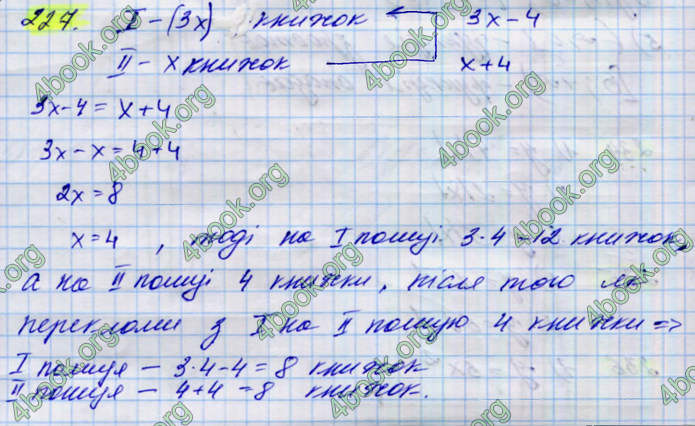 227. I – (3x) книжок 3x – 4
II – x книжок x + 4
3x – 4 = x + 4
3x – x = 4 + 4
2x = 8
x = 4 , тоді на I полиці 3·4 – 12 книжок,
а на II полиці 4 книжки, після того як
переклали з I на II полицю 4 книжки =>
I полиця – 3·4 – 4 = 8 книжок
II полиця – 4 + 4 = 8 книжок.
4book.org